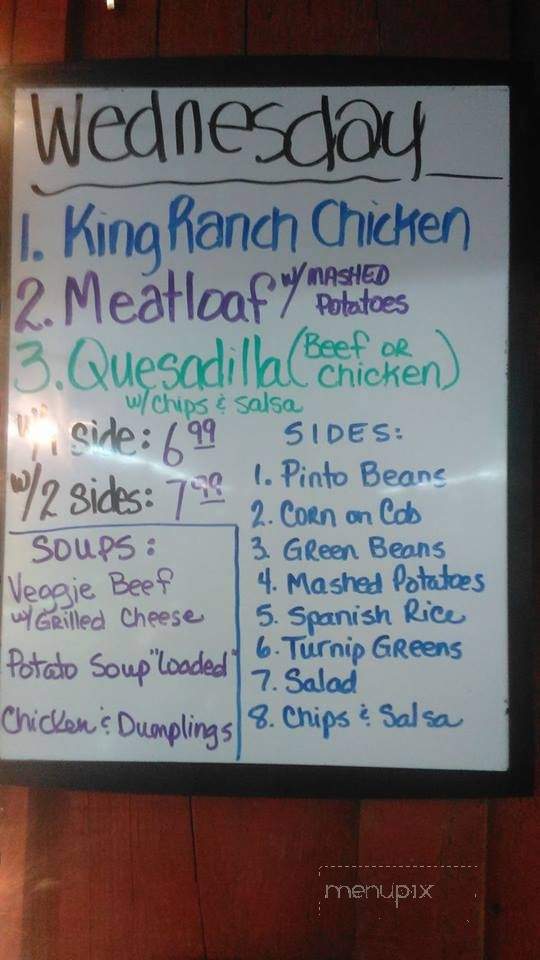 Wednesday
1. King Ranch Chicken
2. Meatloaf w/ MASHED Potatoes
3. Quesadilla (Beef OR chicken)
w/ chips & salsa
w/1 side: 6 99
w/2 sides: 7 99
SOUPS:
Veggie Beef
w/ Grilled Cheese
Potato Soup "Loaded"
Chicken & Dumplings
SIDES:
1. Pinto Beans
2. Corn on Cob
3. Green Beans
4. Mashed Potatoes
5. Spanish Rice
6. Turnip Greens
7. Salad
8. Chips & Salsa
menupix